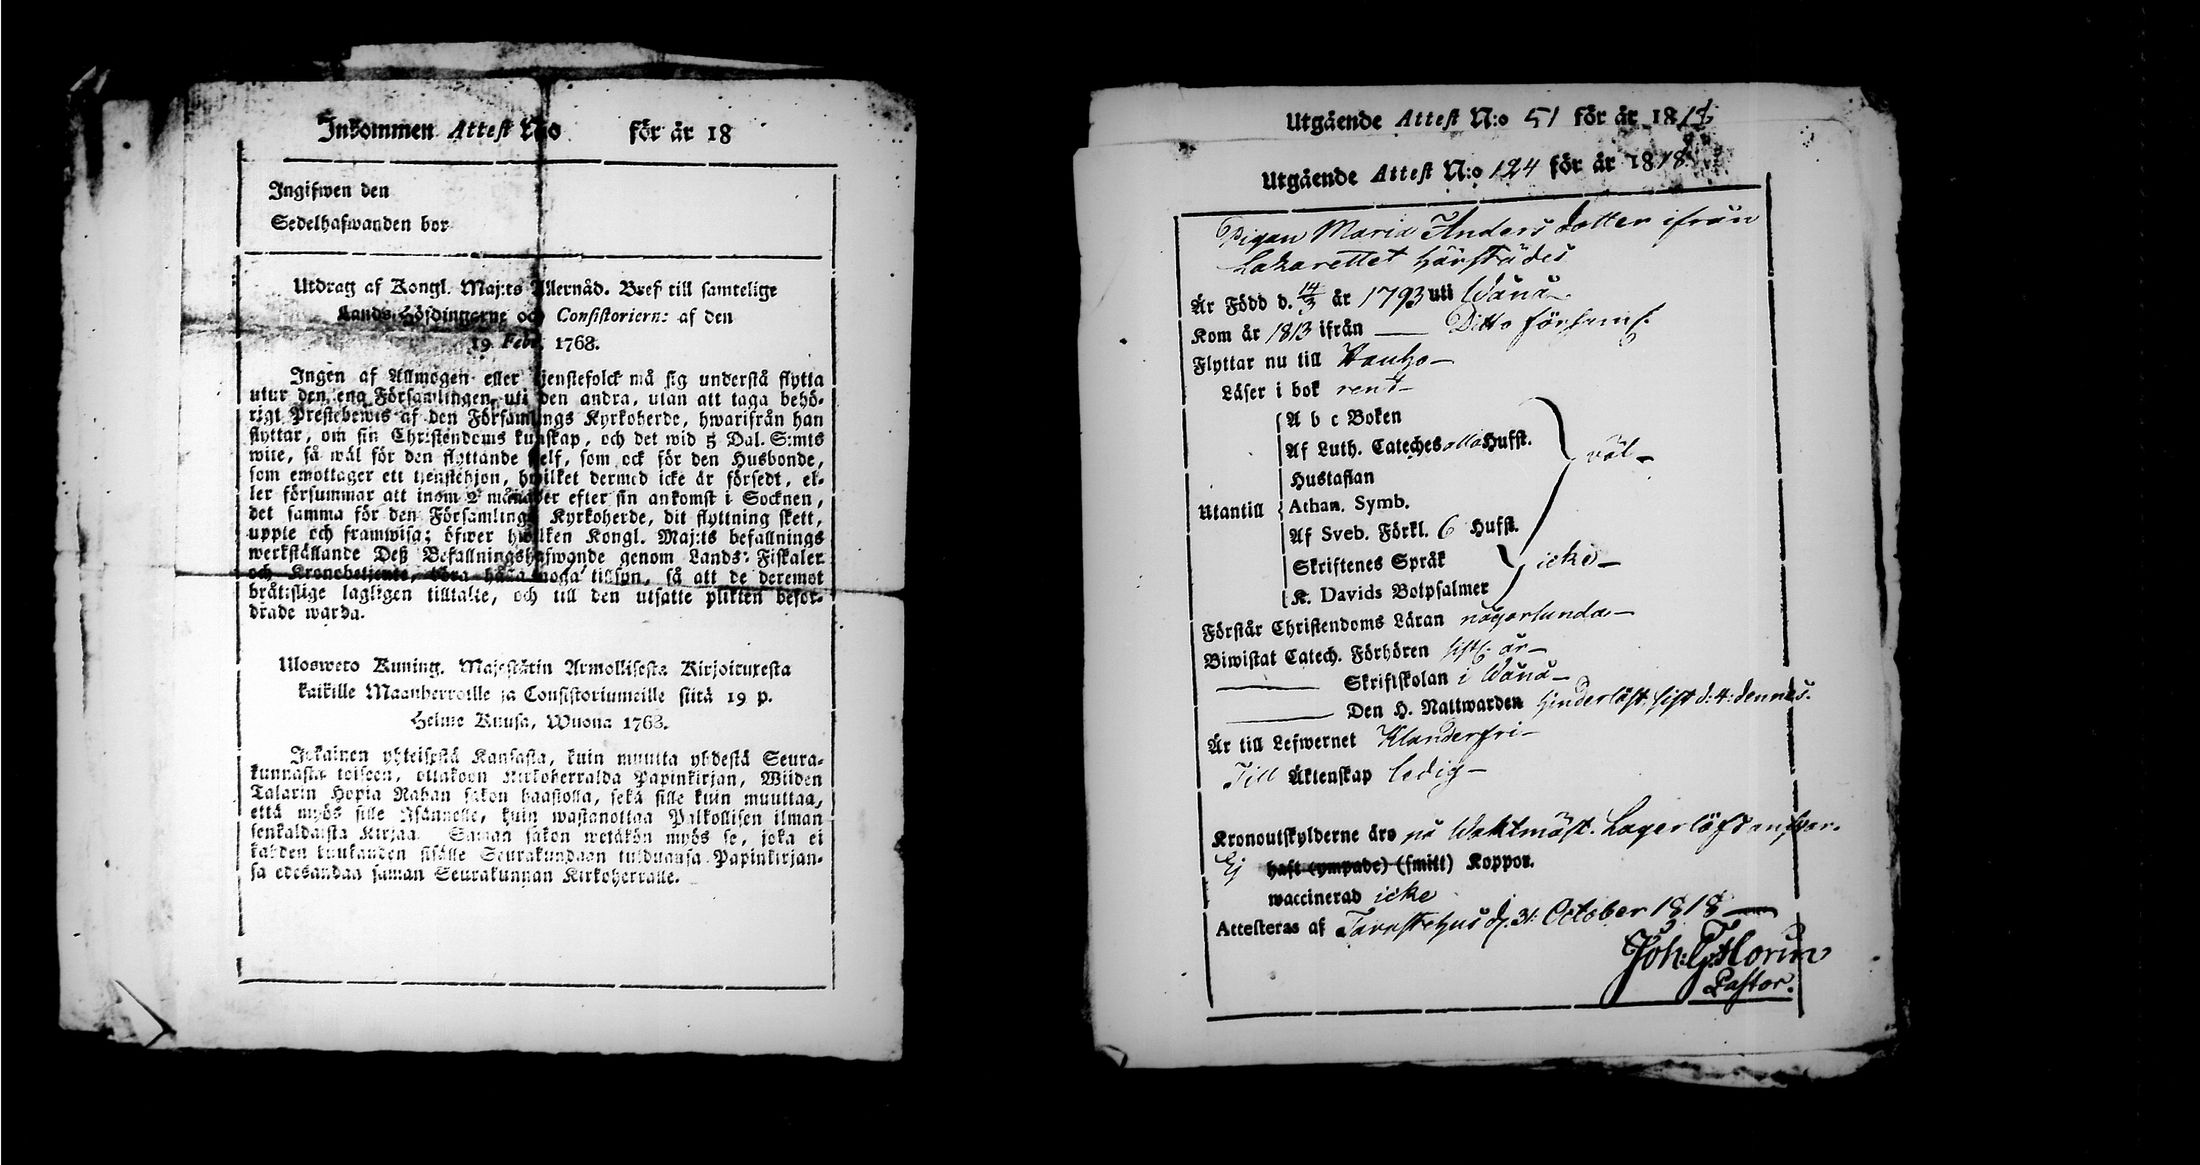 Inkommen Attest N:o för år 18
Ingifwen den
Sedelhafwanden bor
Utdrag af Kongl. Maj:ts Allernåd. Bref till samtelige
Lands-Höfdingarne och Consistoriern: af den
19 Febr. 1768.
Ingen af Allmogen eller tjenstefolck må sig understå flytta
utur den ena Församlingen uti den andra, utan att taga behö-
rigt Prestebewis af den Församlings Kyrkoherde, hwarifrån han
flyttar, om sin Christendoms kunskap, och det wid 5 Dal. S:mts
wite, så wäl för den flyttande self, som ock för den Husbonde,
som emottager ett tjenstehjon, hwilket dermed icke är försedt, el-
ler försummar att inom 2 månader efter sin ankomst i Socknen,
det samma för den Församlings Kyrkoherde, dit flyttning skett,
uppte och framwisa; öfwer hwilken Kongl. Maj:ts befallnings
werkställande Deß Befallningshafwande genom Lands-Fiskaler
och Kronobetjente, böra hafwa noga tillsyn, så att de deremot
bråtislige lagligen tilltalte, och till den utsatte plikten befor-
drade warda.
Uloswето Kuning. Majestätin Armollisesta Kirjoituxesta
kaikille Maanherroille ja Consistoriumeille siitä 19 p.
Helme Kuusa, Wuona 1768.
Jokainen yhteisestä Kansasta, kuin muutta yhdestä Seura-
kunnasta toiseen, ottakoon Kirkoherralda Papinkirjan, Wiiden
Talarin Hopia Rahan sakon haastolla, sekä sille kuin muuttaa,
että myös sille Isännelle, kuin wastanottaa Palkollisen ilman
senkaldaista Kirjaa. Saman sakon wetäkön myös se, joka ei
kahden kuukauden sisälle Seurakundaan tulduansa Papinkirjan-
sa edesandaa saman Seurakunnan Kirkoherralle.
Utgående Attest N:o 51 för år 1818
Utgående Attest N:o 124 för år 1818
Pigan Maria Anders dotter ifrån
Lazarettet härstädes
Är Född d. 14/3 år 1793 uti Wånå
Kom år 1813 ifrån — Ditto församl.
Flyttar nu till Hauho —
Läser i bok rent —
A b c Boken
Af Luth. Cateches alla Hufst.
Hustaflan
väl —
Utantill Athan. Symb.
Af Sveb. Förkl. 6 Hufst.
Skriftenes Språk
icke —
K. Davids Botpsalmer
Förstår Christendoms Läran någorlunda —
Biwistat Catech. Förhören sistl. år —
— Skriftskolan i Wånå —
— Den H. Nattwarden hinderlöst sist d. 4: dennes.
Är till Lefwernet Klanderfri —
Till Äktenskap ledig —
Kronoutskylderne äro på Waktmäst. Lagerlöfs answar.
Ej haft (ympade) (smitt) Koppor.
waccinerad icke
Attesteras af Tavastehus d. 31 October 1818 —
Joh: G: Florin
Pastor.